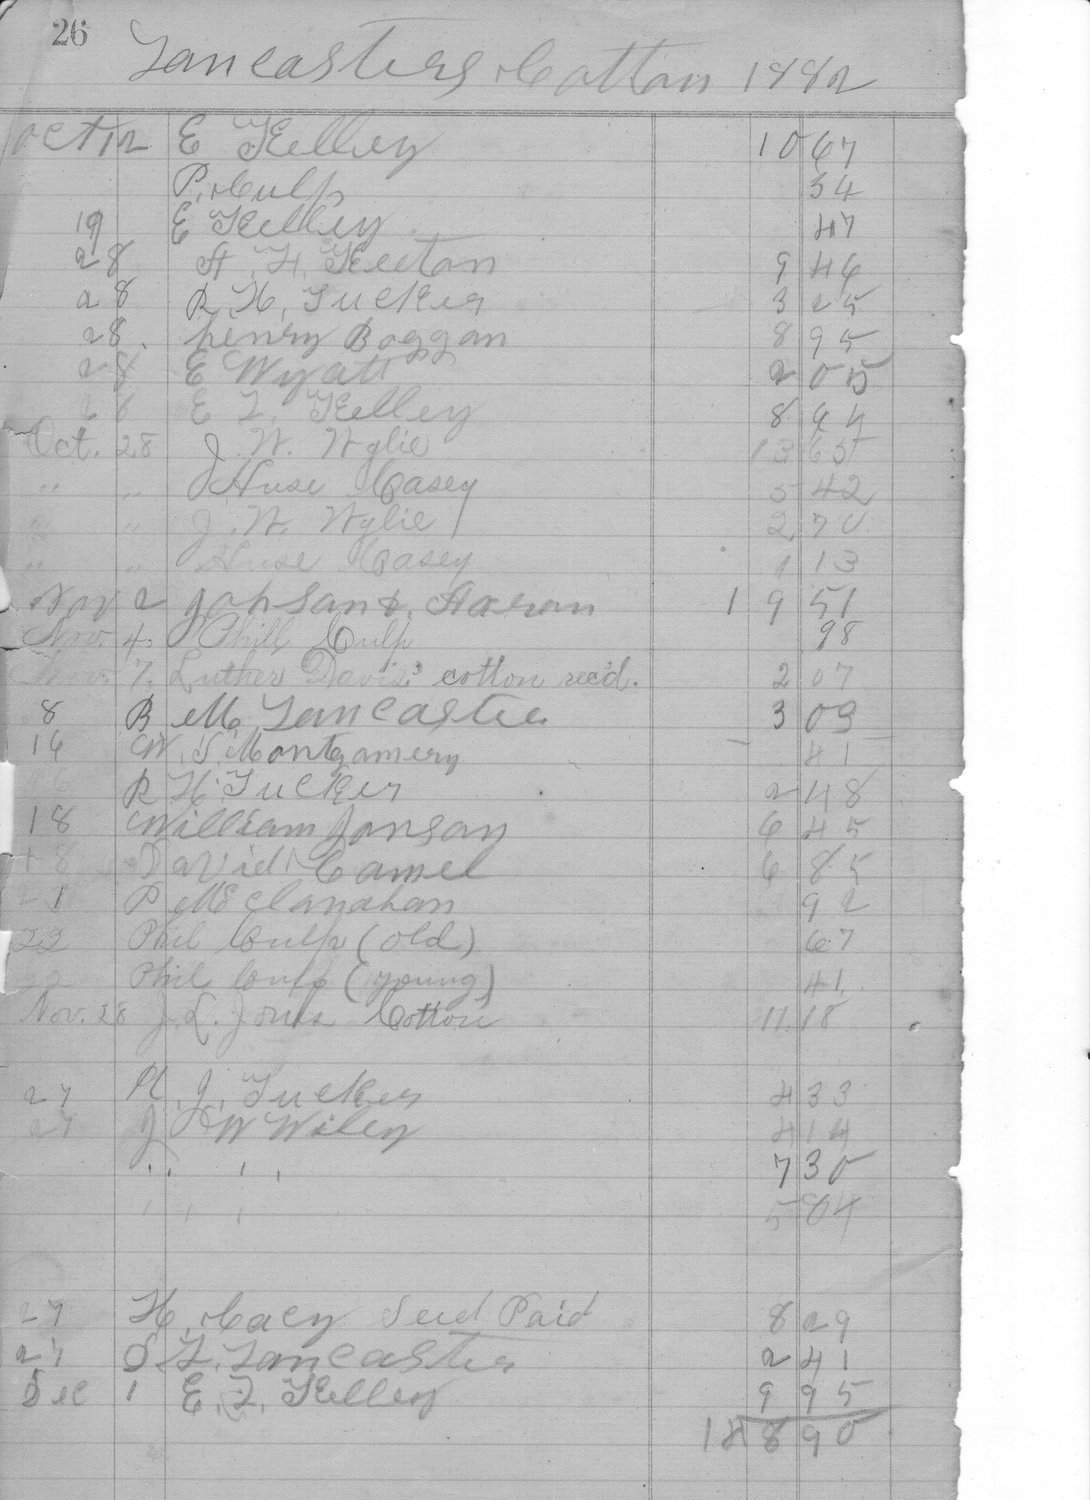 26
Lancasters Cotton 1882
Oct 12 E Kelley 10 67
P. Culp 54
19 E Kelley 47
28 A. H. Keeton 9 46
28 R. H. Tucker 3 25
28. henry Boggan 8 95
28 E Wyatt 2 05
28 E L. Kelley 8 94
Oct. 28 J. W. Wylie 13 65
" " Huse Casey 5 42
" " J. W. Wylie 2 70
" " Huse Casey 1 13
Nov 2 Johson &. Aaron 1 9 51
Nov. 4. Phill Culp 98
Nov. 7. Luther Davis' cotton rec'd. 2 07
8 B M Lancaster 3 03
16 W. S. Montgomery 41
16 R H. Tucker 2 48
18 William Jonson 6 45
18 David Camel 6 85
21 P McClanahan 92
22 Phil Culp (old) 67
22 Phil Culp (young) 41.
Nov. 28 J. L. Jones Cotton 11.18
27 J. Tucker 4 33
27 J W Wiley 4 14
" " " 7 30
" " " 5 04
27 H. Cacy Seed Paid 8 29
27 S. L. Lancaster 2 41
Dec 1 E. L. Kelley 9 95
8 90